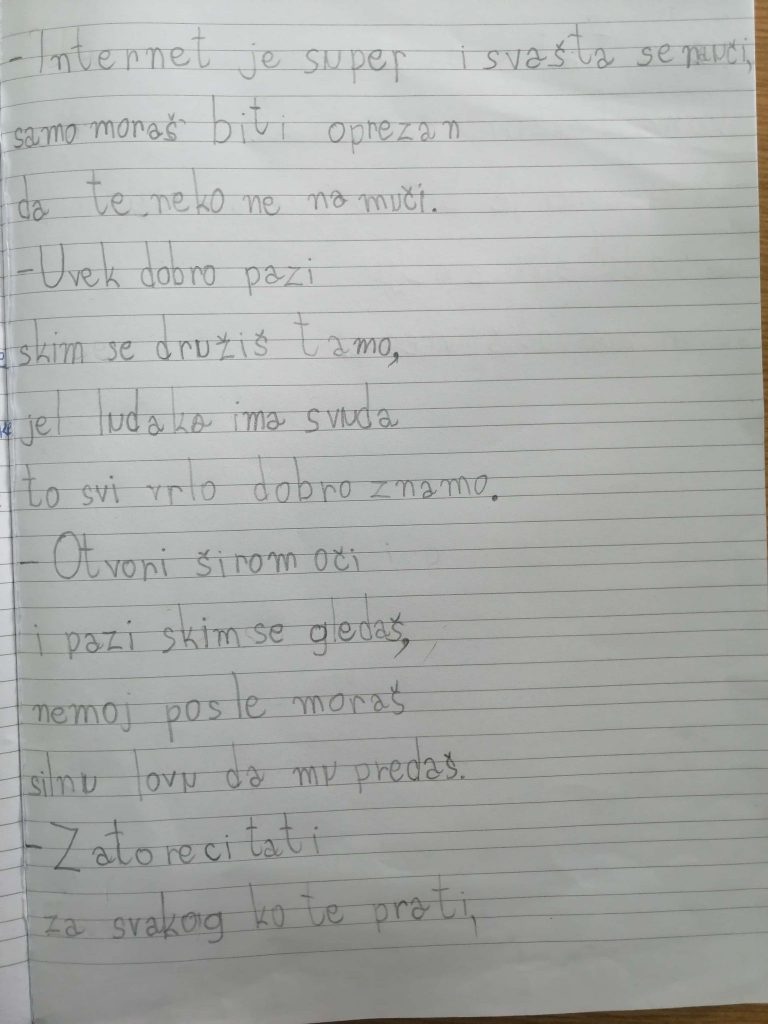 - Internet je super i svašta se nauči,
samo moraš biti oprezan
da te neko ne namuči.
- Uvek dobro pazi
skim se družiš tamo,
jel ludaka ima svuda
to svi vrlo dobro znamo.
- Otvori širom oči
i pazi skim se gledaš,
nemoj posle moraš
silnu lovu da mu predaš.
- Zato reci tati
za svakog ko te prati,